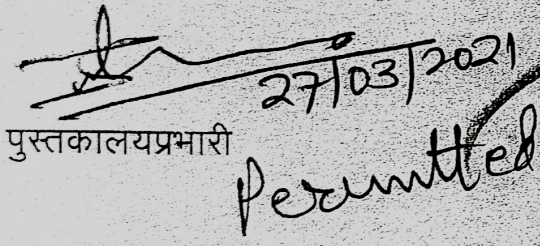 27/03/2021
पुस्तकालयप्रभारी
Permitted